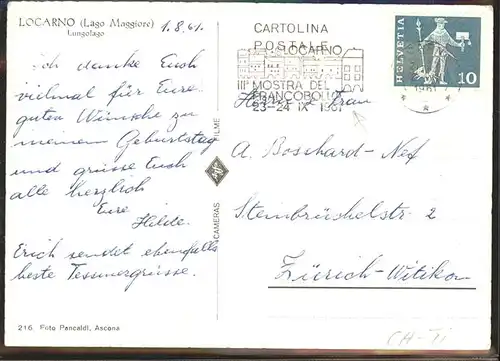 LOCARNO (Lago Maggiore)
Lungolago
1.8.61.
Ich danke Euch
vielmal für Eure
guten Wünsche zu
meinem Geburtstag
und grüsse Euch
alle herzlich
Eure
Hilde.
Erich sendet ebenfalls
beste Tessinergrüsse.
216 Foto Pancaldi, Ascona
FILME
CAMERAS
CARTOLINA
POSTALE
LOCARNO
IIIª MOSTRA DEL
FRANCOBOLLO
23-24 IX 1961
HELVETIA
10
1961
Herrn Frau
A. Bosshard-Nef
Steinbrüchelstr. 2
Zürich-Witikon
CH-TI